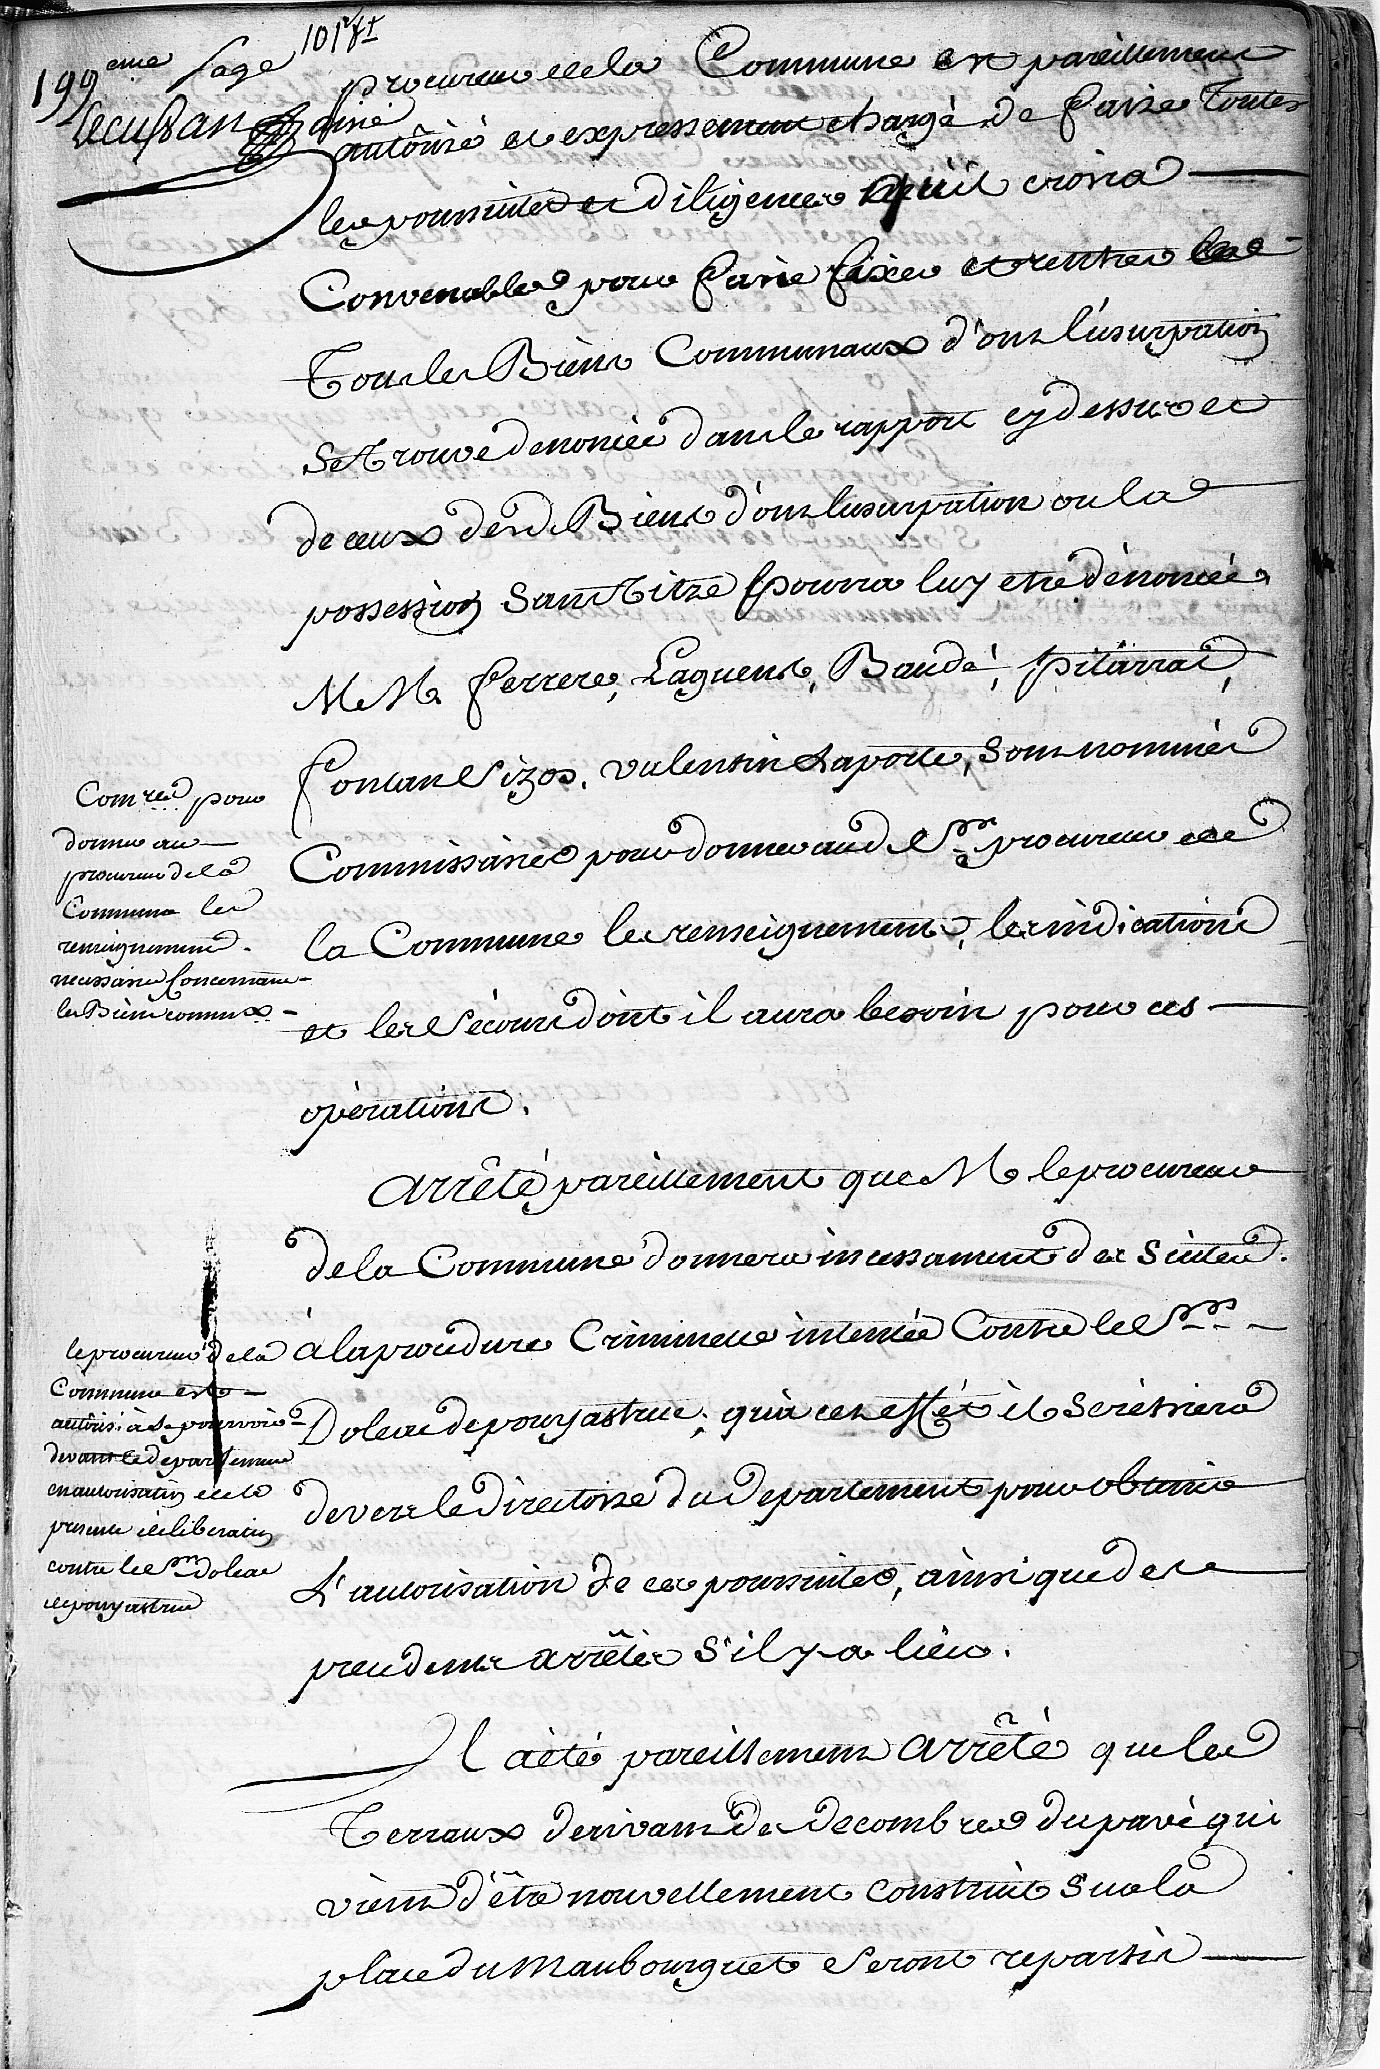 199eme page
Lecussan
procureur de la Commune est pareillement
autorisé et expressement chargé de faire Toutes
les poursuites et diligences qu'il croira
Convenables pour faire fixer et rentrer les
Tous les Biens Communaux d'ont l'usurpation
Se Trouve denoncée dans le rapport cy dessus et
de ceux desd. Biens d'ont lusurpation ou la
possession Sans Titre pourra luy etre dénoncée.
M. M. ferrere, Laguens, Baudé, pitarrat,
fontan Sizos, valentin Laporte, Sont nommés
Commissaires pour donner aud. Sr. procureur de
la Commune les renseignements, les indications
et les Sécours dont il aura besoin pour ces
opérations.
Comres pour
donner au
procureur de la
Commune les
renseignements
necessaires Concernant
les Biens commux
arrêté pareillement que M le procureur
de la Commune donnera incessament des Suites
à la procedure Criminelle intentée Contre le Sr.
Doleac de pouyastruc; qu'à cet effét il Se rétirera
devers le directoire du departement pour obtenir
L'autorisation de ces poursuites, ainsi que des
precedents arrêtés S'il y a lieu.
le procureur de la
Commune est
autorisé à Se pourvoir
devant le département
en autorisation de la
presente déliberation
contre le Sr. doleac
de pouyastruc
Il a été pareillement arrêté que les
Terraux derivant des decombres du pavé qui
vient d'être nouvellement construit Sur la
place du Maubourguet Seront repartis